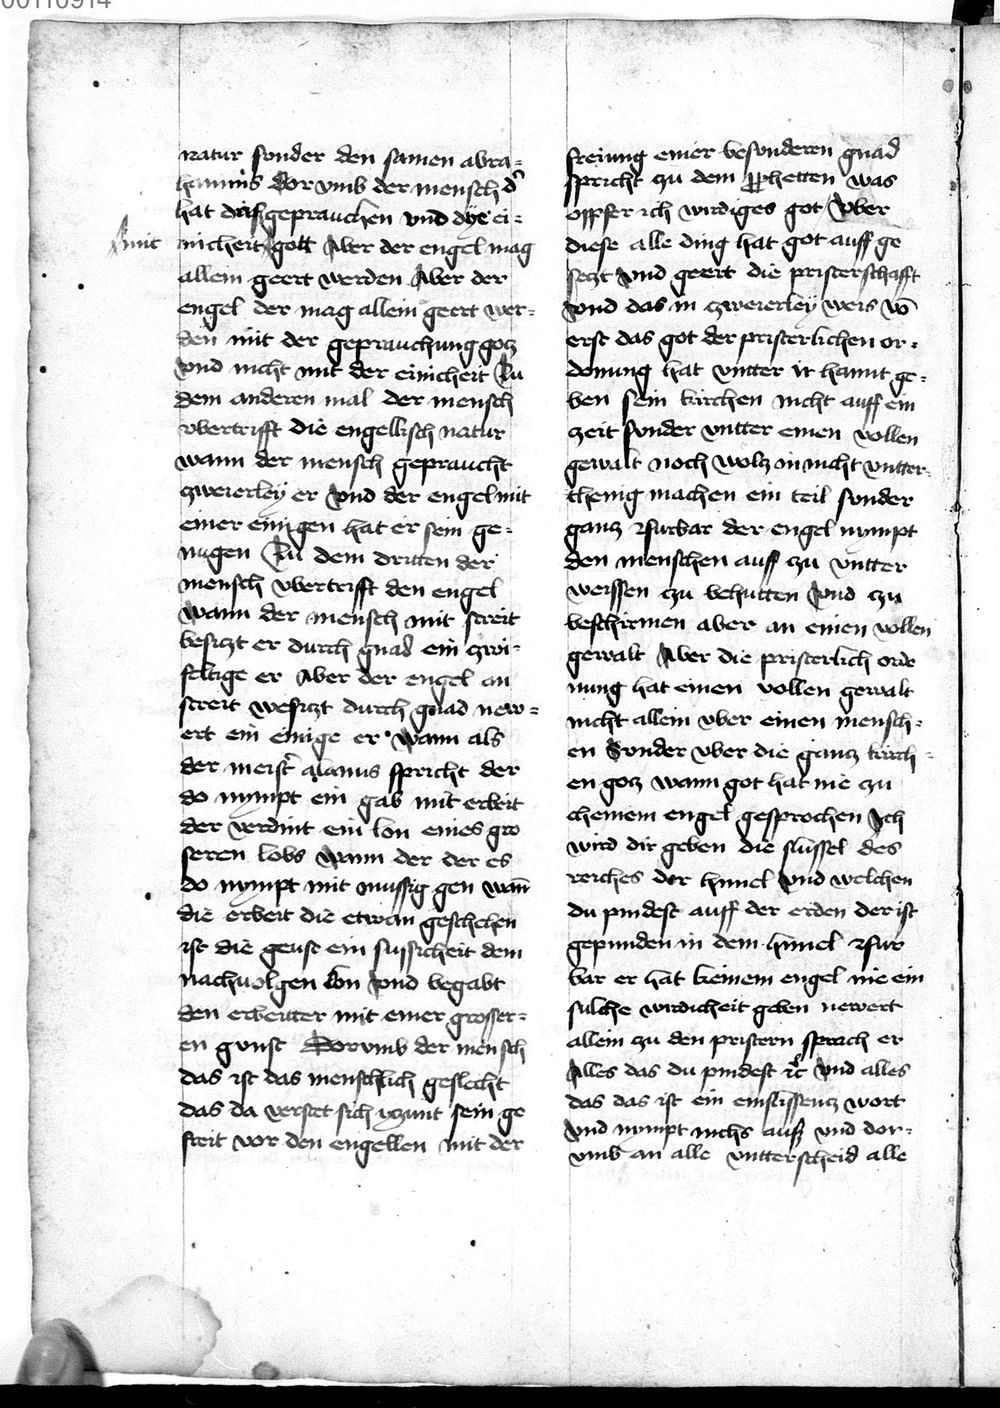 00110914
natur sonder den samen abra=
hamms Dor vmb der mensch d'
hat das geprauchen vnd dye ei=
nicheit gott Aber der engel mag
mit
allein geert werden Aber der
engel der mag allein geert wer=
den mit der geprauchung gocz
vnd nicht mit der einicheit Cu
dem anderen mal der mensch
vbertrifft die engellisch natur
wann der mensch gepraucht
zweierley er vnd der engel mit
einer einigen hat er sein ge=
nugen Cu dem dritten der
mensch vbertrifft den engel
wann der mensch mit streit
besiczt er durch gnad ein zwi=
feltige er Aber der engel an
streit wesiczt durch gnad new=
ert ein einige er wann als
der meist' alanus spricht der
do nympt ein gab mit erbeit
der verdint ein lon eines gro
seren lobs wann der der es
do nympt mit mussig gen wan̄
die erbeit die etwan geschehen
ist die geust ein sussicheit dem
nachuolgen lon vnd begabt
den erbeitter mit einer grosser=
en gunst Dorvmb der mensch
das ist das menschlich geslecht
das da verstet sich yczunt sein ge
freit vor den engellen mit der
freiung einer besonderen gnad
spricht zu dem pphetten was
oppfer ich wirdiges got Vber
diese alle ding hat got auff ge
seczt vnd geert die pristerschafft
vnd das in zweierley weis vō
erst das got der pristerlichen or=
denung hat vntter ir hannt ge=
ben sein kirchen nicht auff ein
zeit sunder vntter einen vollen
gewalt noch wolz in nicht vntter=
thenig machen ein teil sonder
ganz ffurbar der engel nympt
den menschen auff zu vntter
weissen zu behutten vnd zu
beschirmen aber an einen vollen
gewalt Aber die pristerlich orde
nung hat einen vollen gewalt
nicht allein vber einen mensch=
en Sonder vber die gancz kirch=
en gocz wann got hat nie zu
cheinem engel gesprochen Ich
wird dir geben die slussel des
reiches der himel vnd welchen
du pindest auff der erden der ist
gepunden in dem himel ffur
bar er hat keinem engel nie ein
sulche wirdicheit geben newert
allein zu den pristern sprach er
Alles das du pindest etc vnd alles
das das ist ein einslissencz wort
vnd nympt nichs auß vnd dor=
vmb an alle vntterscheid alle